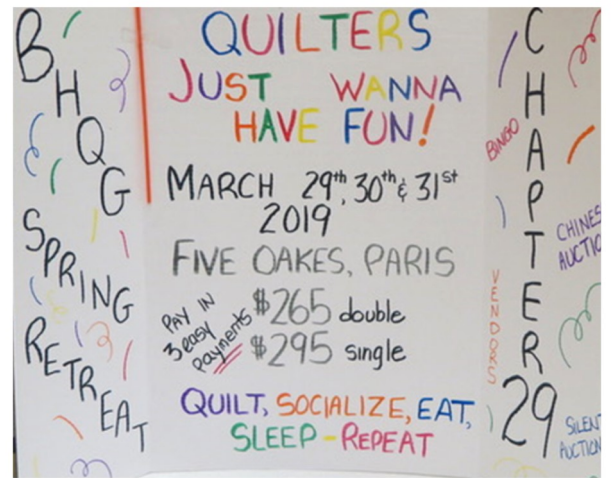 BHQG
SPRING
RETREAT
QUILTERS
JUST WANNA
HAVE FUN!
MARCH 29th, 30th & 31st
2019
FIVE OAKES, PARIS
PAY IN
3 easy
payments
$265 double
$295 single
QUILT, SOCIALIZE, EAT,
SLEEP - REPEAT
CHAPTER
29
BINGO
VENDORS
CHINES
AUCTIO
SILENT
AUCTION